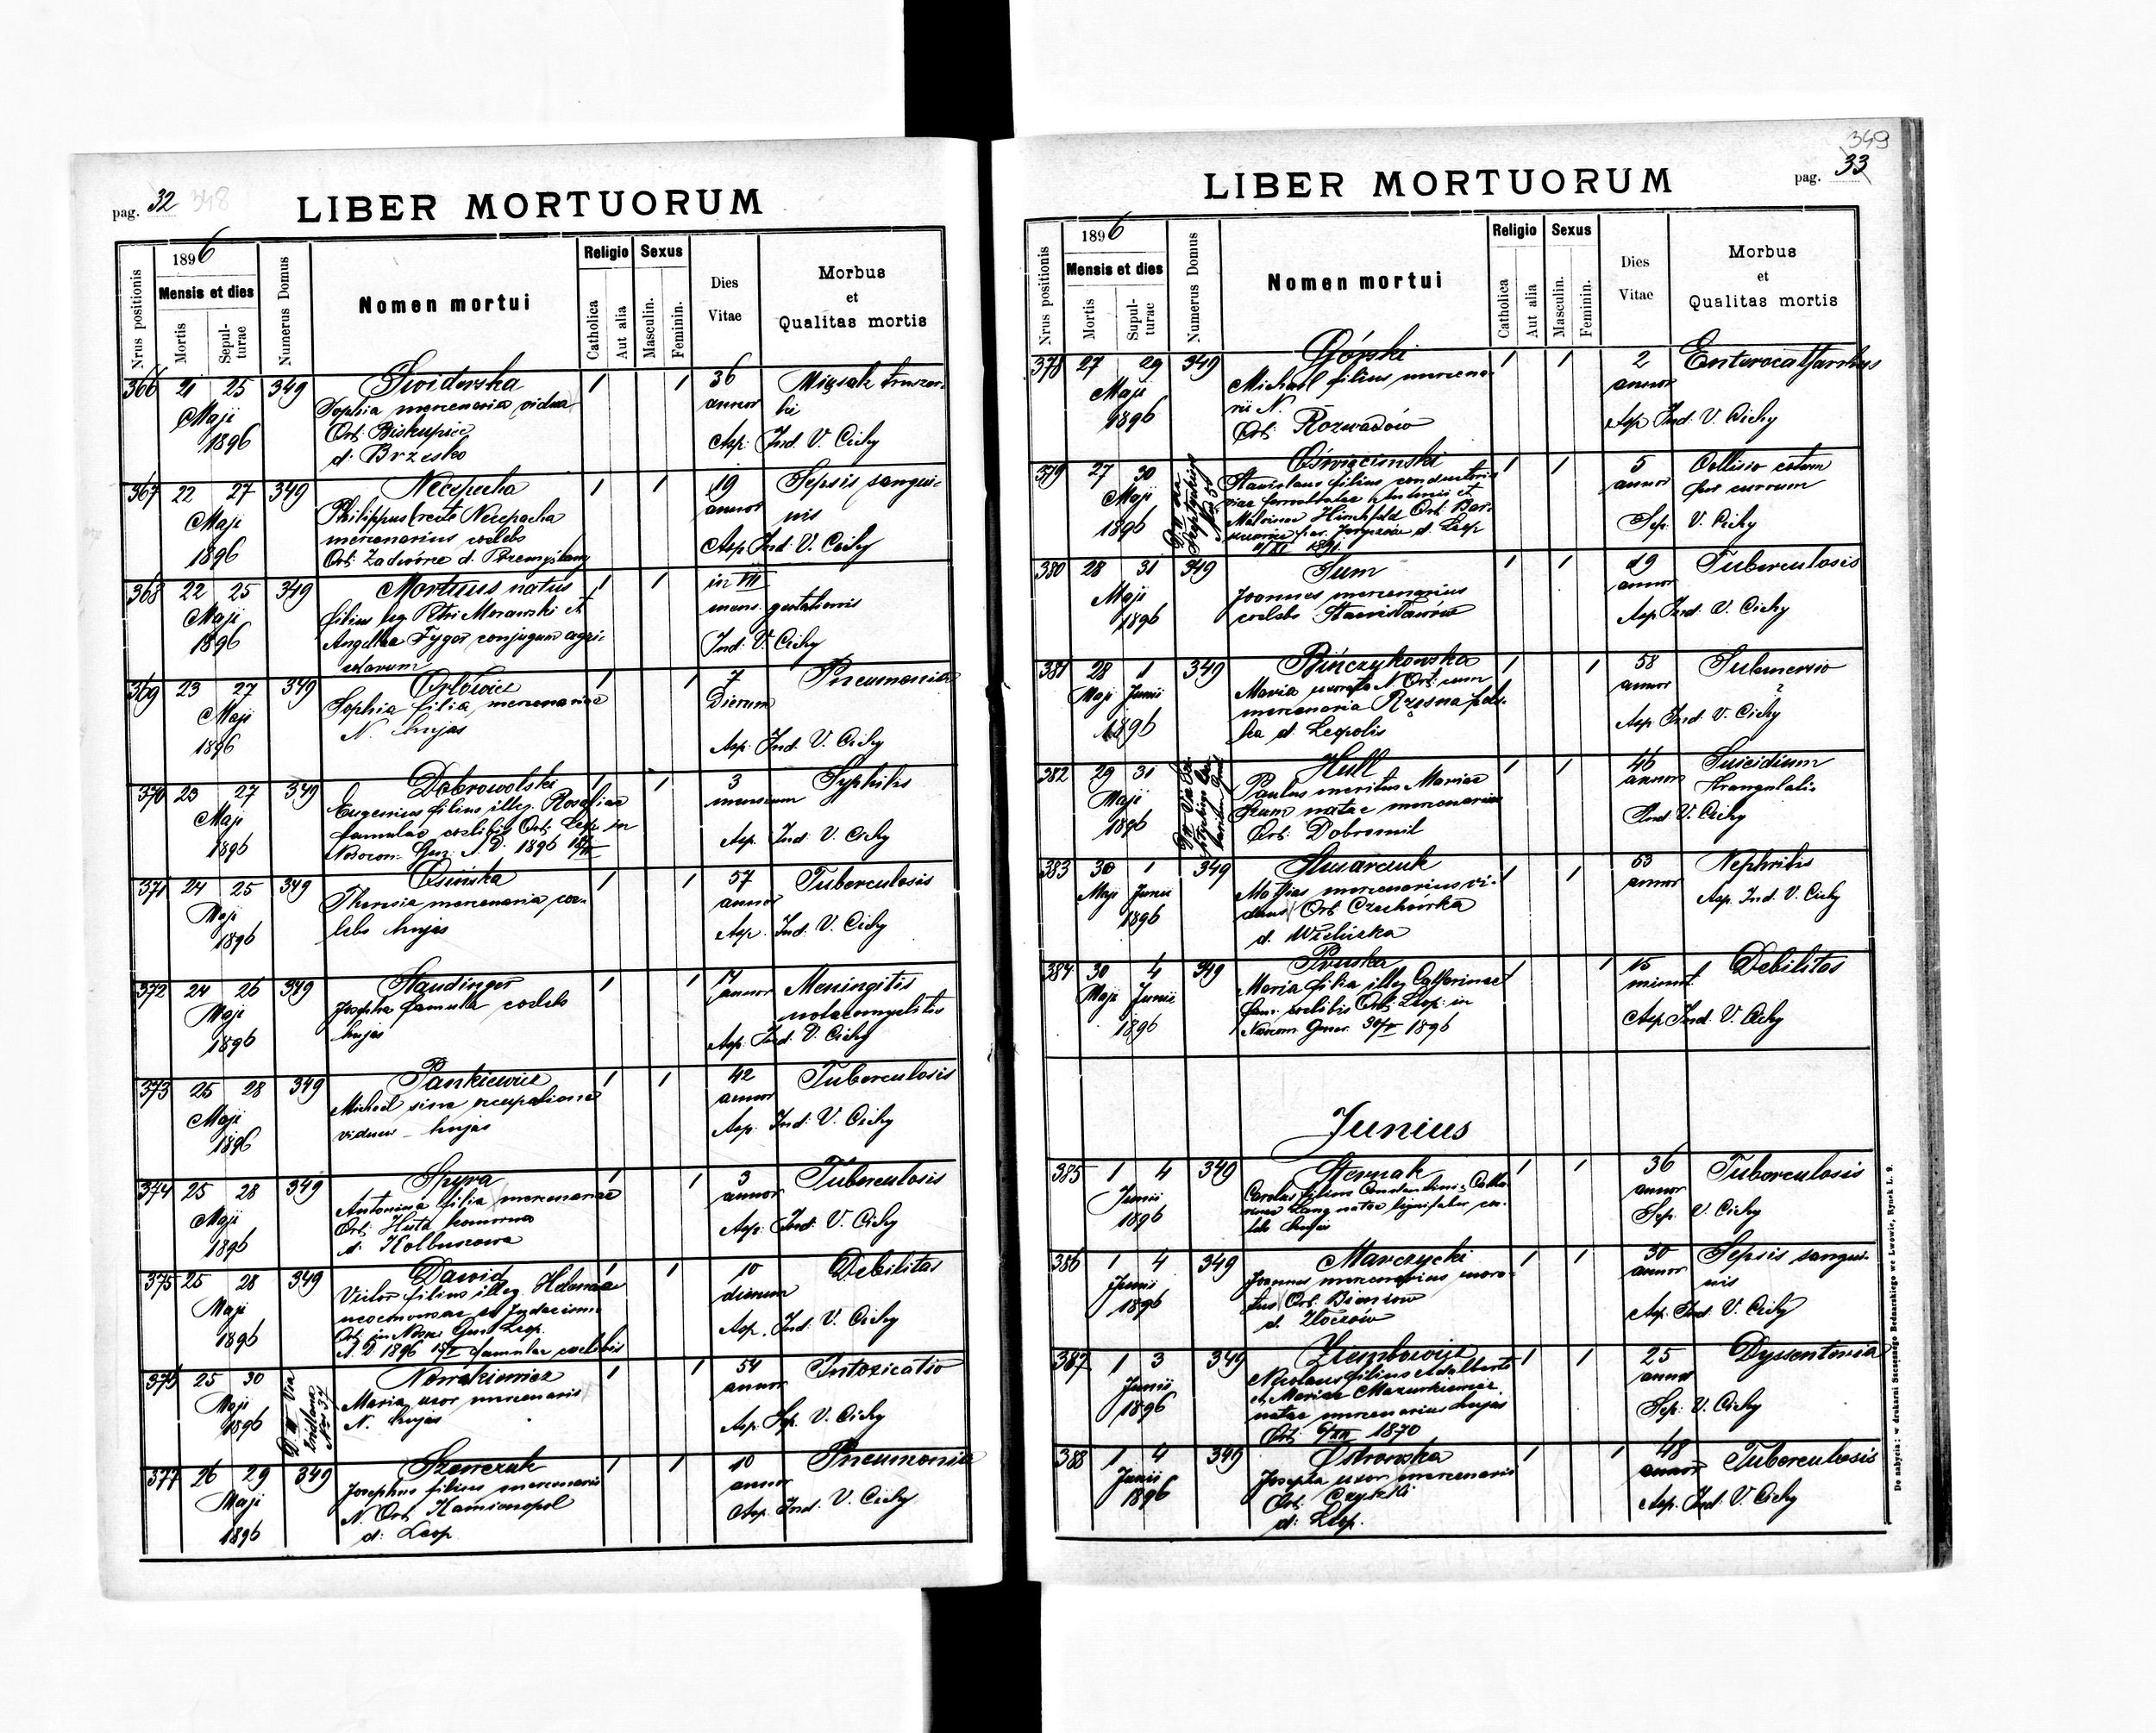 pag. 32 348
LIBER MORTUORUM
Nrus positionis
1896
Mensis et dies
Mortis
Sepul-
turae
Numerus Domus
Nomen mortui
Religio
Catholica
Aut alia
Sexus
Masculin.
Feminin.
Dies
Vitae
Morbus
et
Qualitas mortis
366 21 25 349 Swiderska 1 1 36 Mięsak
Sophia mercenaria vidua annor
Ort: Biskupice
Maji
1896 d: Brzesko Asp: Ind. V. Cichy
367 22 27 349 Necepecha 1 1 19 Sepsis sangui-
Philippus recte Necepacha annor nis
Maji mercenarius coelebs
1896 Ort: Zadwórze d. Przemyślany Asp Ind V. Cichy
368 22 25 349 Mortuus natus 1 1 in VII
Maji filius leg Petri Morawski et mens. gestationis
1896 Angelka Tygor conjugum agri-
colarum Ind: V. Cichy
369 23 27 349 Orłowicz 1 1 7 Pneumonia
Maji Sophia filia mercenariae Dierum
1896 N. hujas Asp: Ind. V. Cichy
370 23 27 349 Dobrowolski 1 1 3 Syphilis
Maji Eugenius filius illeg. Rosaliae mensium
1896 famulae coelibis Ort: Leop in
Nosocom: Gen: A. D. 1896 Asp. Ind: V. Cichy
371 24 25 349 Osińska 1 1 57 Tuberculosis
Maji Theresia mercenaria coe- annor
1896 lebs hujas Asp. Ind: V. Cichy
372 24 26 349 Staudinger 1 1 annor Meningitis
Maji Josepha famula coelebs
1896 hujas Asp: Ind: V. Cichy
373 25 28 349 Pankiewicz 1 1 42 Tuberculosis
Maji Michael sine occupatione annor
1896 viduus – hujas Asp. Ind: V. Cichy
374 25 28 349 Spyra 1 1 3 Tuberculosis
Maji Antonina filia mercenariae annor
Ort: Huta komorowa
1896 d: Kolbuszowa Asp: Ind: V. Cichy
375 25 28 349 Dawid 1 1 10 Debilitas
Maji Victor filius illeg. Helenae dierum
1896 Ort: in Noso: Gen: Leop.
A. D 1896 famulae coelibis Asp. Ind: V. Cichy
376 25 30 D Via 1 1 54 Intoxicatio
Maji Nro 37 Nowakiewicz annor
1896 Maria uxor mercenarii
N. hujas Asp. Sp. V. Cichy
377 26 29 349 Szewczuk 1 1 10 Pneumonia
Maji Josephus filius mercenarii annor
1896 N. Ort: Kamionopol
d: Leop. Asp. Ind. V. Cichy
349
pag. 33
LIBER MORTUORUM
Nrus positionis
1896
Mensis et dies
Mortis
Supul-
turae
Numerus Domus
Nomen mortui
Religio
Catholica
Aut alia
Sexus
Masculin.
Feminin.
Dies
Vitae
Morbus
et
Qualitas mortis
378 27 29 349 Górski 1 1 2 Enterocatharrhus
Maji Michael filius mercena- annor
1896 rii N.
Ort: Rozwadów Asp Ind: V. Cichy
379 27 30 Oświęcimski 1 1 5 Collisio
Maji Stanislaus filius conductoris annor per currum
1896 Malvinae Hirschfeld Ort: Bor-
1891 Sep: V. Cichy
380 28 31 349 Sum 1 1 19 Tuberculosis
Maji Joannes mercenarius annor
1896 coelebs Stanisławów Asp Ind. V. Cichy
381 28 1 349 Bińczykowska 1 1 58 Submersio
Maji Junii Maria uxorata N. Ort: cum annor ?
1896 mercenaria Rzęsna pols-
ka d. Leopolis Asp: Ind. V. Cichy
382 29 31 Hull 1 1 46 Suicidium
Maji Paulus maritus Mariae annor strangulatio
1896 natae mercenarius
Ort: Dobromil Ind: V. Cichy
383 30 1 349 Slusarczuk 1 1 63 Nephritis
Maji Junii Mathias mercenarius vi- annor
1896 duus Ort: Czechówka
d. Wieliczka Asp. Ind. V. Cichy
384 30 4 349 Pruska 1 1 15 Debilitas
Maji Junii Maria filia illeg Catharinae minut
1896 fam: coelibis Ort: Leop: in
Nosocom Gener. 30/V 1896 Asp Ind: V. Cichy
Junius
385 1 4 349 Sternak 1 1 36 Tuberculosis
Junii Carolus filius Constantini & Catha annor
1896 rinae Lang natae lignifaber coe-
lebs hujas Sep. V. Cichy
386 1 4 349 Marczycki 1 1 30 Sepsis sangui-
Junii Joannes mercenarius uxora- annor nis
1896 tus Ort: Bieniow
d. Złoczów Asp: Ind. V. Cichy
387 1 3 349 Ziembowicz 1 1 25 Dyssenteria
Junii Nicolaus filius Adalberti annor
1896 et Mariae Mazurkiewicz
natae mercenarius hujas
Ort: 6/XII 1870 Sep: V. Cichy
388 1 4 349 Ostrowska 1 1 48 Tuberculosis
Junii Josepha uxor mercenarii annor
1896 Ort: Czyszki
d: Leop. Asp. Ind: V. Cichy
Do nabycia: w drukarni Szczęsnego Bednarskiego we Lwowie, Rynek L. 9.